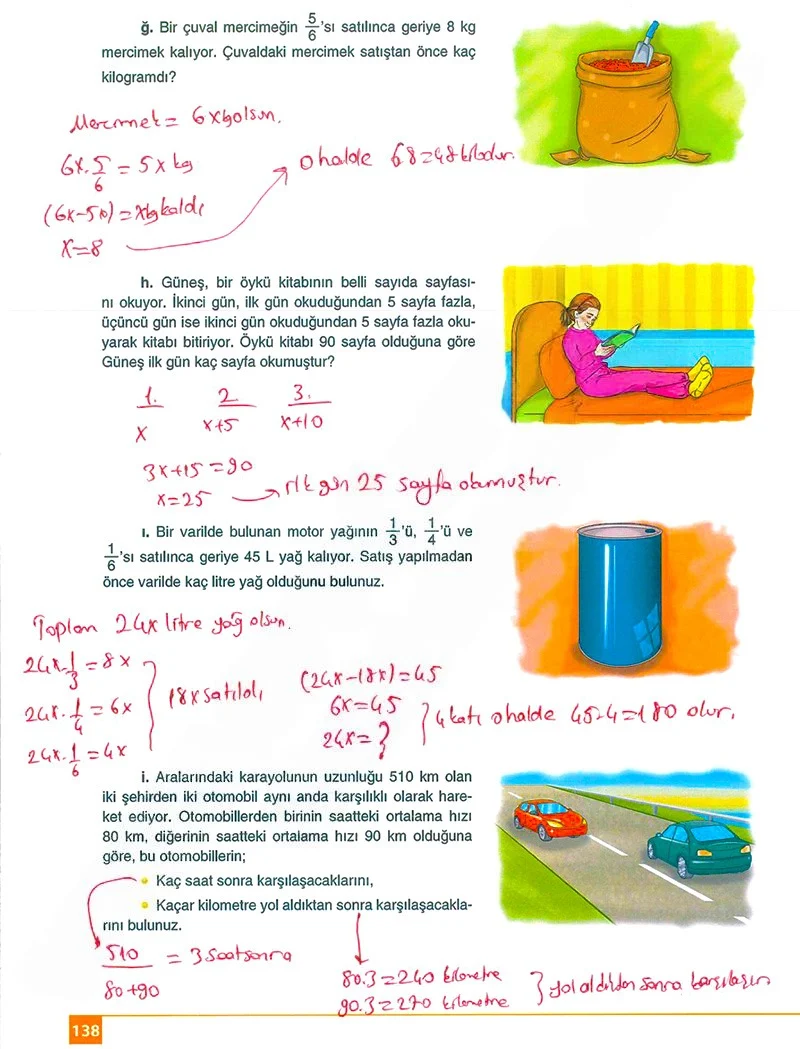 ğ. Bir çuval mercimeğin 5/6'sı satılınca geriye 8 kg
mercimek kalıyor. Çuvaldaki mercimek satıştan önce kaç
kilogramdı?
Mercimek = 6x kg olsun.
6x.5/6 = 5x kg
(6x-5x) = x kg kaldı
x=8
o halde 6.8=48 kilodur.
h. Güneş, bir öykü kitabının belli sayıda sayfası-
nı okuyor. İkinci gün, ilk gün okuduğundan 5 sayfa fazla,
üçüncü gün ise ikinci gün okuduğundan 5 sayfa fazla oku-
yarak kitabı bitiriyor. Öykü kitabı 90 sayfa olduğuna göre
Güneş ilk gün kaç sayfa okumuştur?
1. 2. 3.
x x+5 x+10
3x+15=90
x=25 → ilk gün 25 sayfa okumuştur.
ı. Bir varilde bulunan motor yağının 1/3'ü, 1/4'ü ve
1/6'sı satılınca geriye 45 L yağ kalıyor. Satış yapılmadan
önce varilde kaç litre yağ olduğunu bulunuz.
Toplam 24x litre yağ olsun.
24x.1/3 = 8x
24x.1/4 = 6x
24x.1/6 = 4x
18x satıldı
(24x-18x)=45
6x=45
24x=?
4 katı o halde 45.4=180 olur.
i. Aralarındaki karayolunun uzunluğu 510 km olan
iki şehirden iki otomobil aynı anda karşılıklı olarak hare-
ket ediyor. Otomobillerden birinin saatteki ortalama hızı
80 km, diğerinin saatteki ortalama hızı 90 km olduğuna
göre, bu otomobillerin;
• Kaç saat sonra karşılaşacaklarını,
• Kaçar kilometre yol aldıktan sonra karşılaşacakla-
rını bulunuz.
510/80+90 = 3 saat sonra
80.3=240 kilometre
90.3=270 kilometre
yol aldıktan sonra karşılaşır.
138